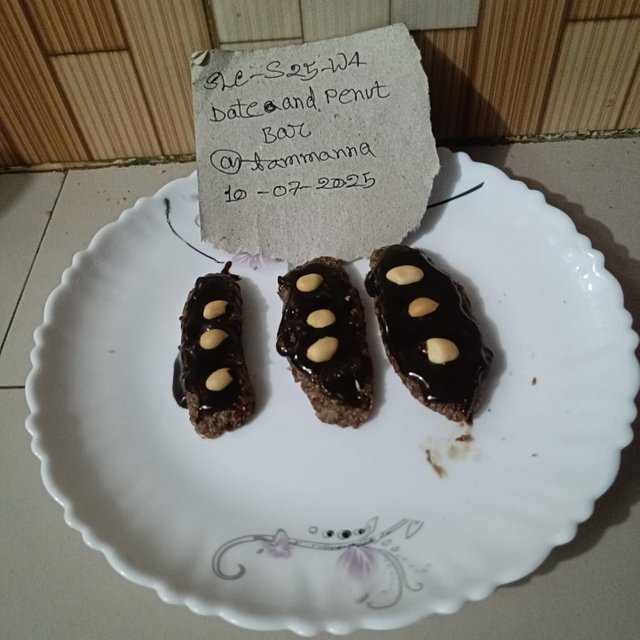 SLC-S25-W4
Date and Penut
Bar
@tammanna
10-07-2025